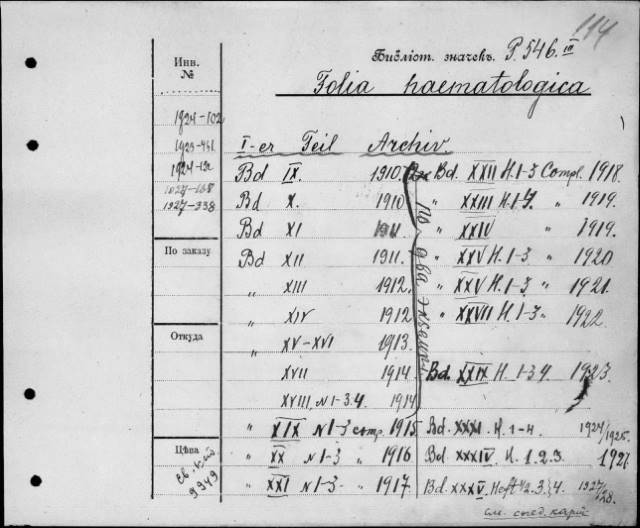 114
Библіот. значекъ. P.546.III
Инв.
№
Folia haematologica
1924-102
1923-441
1924-132
1927-168
1927-338
I-er Teil Archiv.
Bd IX. 1910 Bd. XXII H. 1-3 Compl. 1918.
Bd X. 1910 " XXIII H. 1-4 " 1919.
Bd XI 1911. " XXIV " 1919.
По заказу
Bd XII 1911. " XXV H. 1-3 " 1920
" XIII 1912. " XXV H. 1-3 " 1921.
XIV 1912 " XXVII H. 1-3 " 1922.
Откуда
" XV-XVI 1913.
XVII 1914. Bd. XXIX H. 1-3 4 1923.
XVIII, N 1-3.4. 1914
по два экземпл.
" XIX N 1-3 comp. 1915 Bd. XXXI. H. 1-4. 1924/1925.
Цѣна
" XX N 1-3 " 1916 Bd. XXXIV. H. 1.2.3. 1927.
9949
" XXI N 1-3 " 1917. Bd. XXXV. Heft 1/2. 3. 4. 1927/28.
см. след. карт